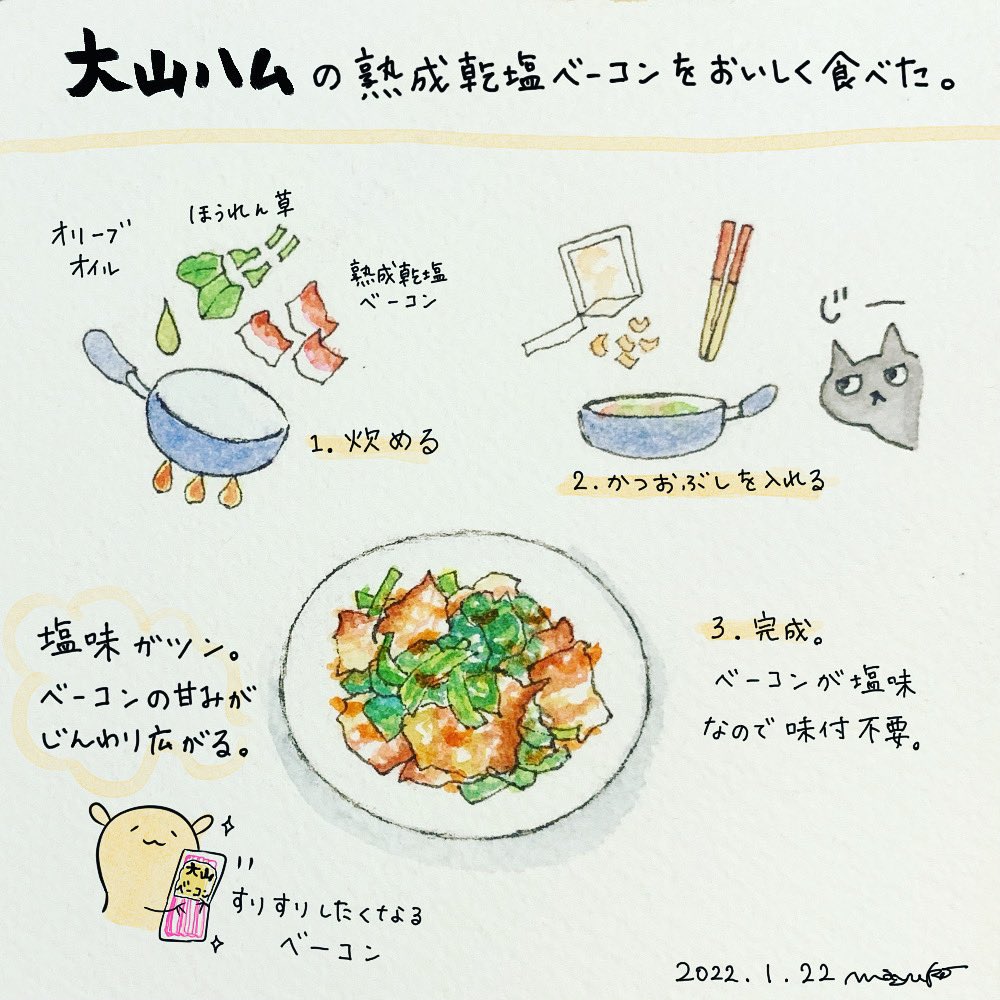 大山ハムの熟成乾塩ベーコンをおいしく食べた。
オリーブ
オイル
ほうれん草
熟成乾塩
ベーコン
1. 炒める
じー
2. かつおぶしを入れる
塩味ガツン。
ベーコンの甘みが
じんわり広がる。
3. 完成。
ベーコンが塩味
なので味付不要。
大山
ベーコン
すりすりしたくなる
ベーコン
2022.1.22